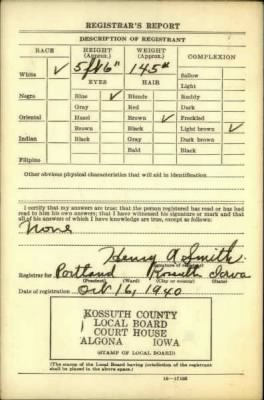 REGISTRAR'S REPORT
DESCRIPTION OF REGISTRANT
RACE HEIGHT (Approx.) WEIGHT (Approx.) COMPLEXION
White ✓ 5 ft 6" 145# Sallow
EYES HAIR Light
Negro Blue ✓ Blonde Ruddy
Gray Red Dark
Oriental Hazel Brown ✓ Freckled
Brown Black Light brown ✓
Indian Black Gray Dark brown
Bald Black
Filipino
Other obvious physical characteristics that will aid in identification
I certify that my answers are true; that the person registered has read or has had
read to him his own answers; that I have witnessed his signature or mark and that
all of his answers of which I have knowledge are true, except as follows:
None
Henry A Smith
(Signature of registrar)
Registrar for Portland Kossuth Iowa
(Precinct) (Ward) (City or county) (State)
Date of registration Oct 16, 1940
KOSSUTH COUNTY
LOCAL BOARD
COURT HOUSE
ALGONA IOWA
(STAMP OF LOCAL BOARD)
(The stamp of the Local Board having jurisdiction of the registrant
shall be placed in the above space.)